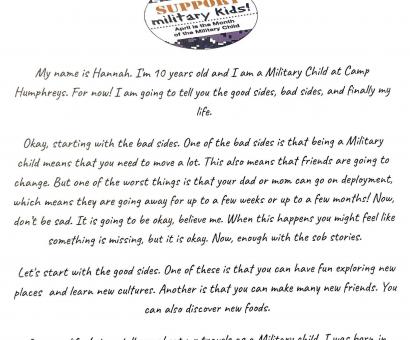 SUPPORT
military kids!
April is the Month
of the Military Child
My name is Hannah. I'm 10 years old and I am a Military Child at Camp
Humphreys. For now! I am going to tell you the good sides, bad sides, and finally my
life.
Okay, starting with the bad sides. One of the bad sides is that being a Military
child means that you need to move a lot. This also means that friends are going to
change. But one of the worst things is that your dad or mom can go on deployment,
which means they are going away for up to a few weeks or up to a few months! Now,
don't be sad. It is going to be okay, believe me. When this happens you might feel like
something is missing, but it is okay. Now, enough with the sob stories.
Let's start with the good sides. One of these is that you can have fun exploring new
places and learn new cultures. Another is that you can make many new friends. You
can also discover new foods.